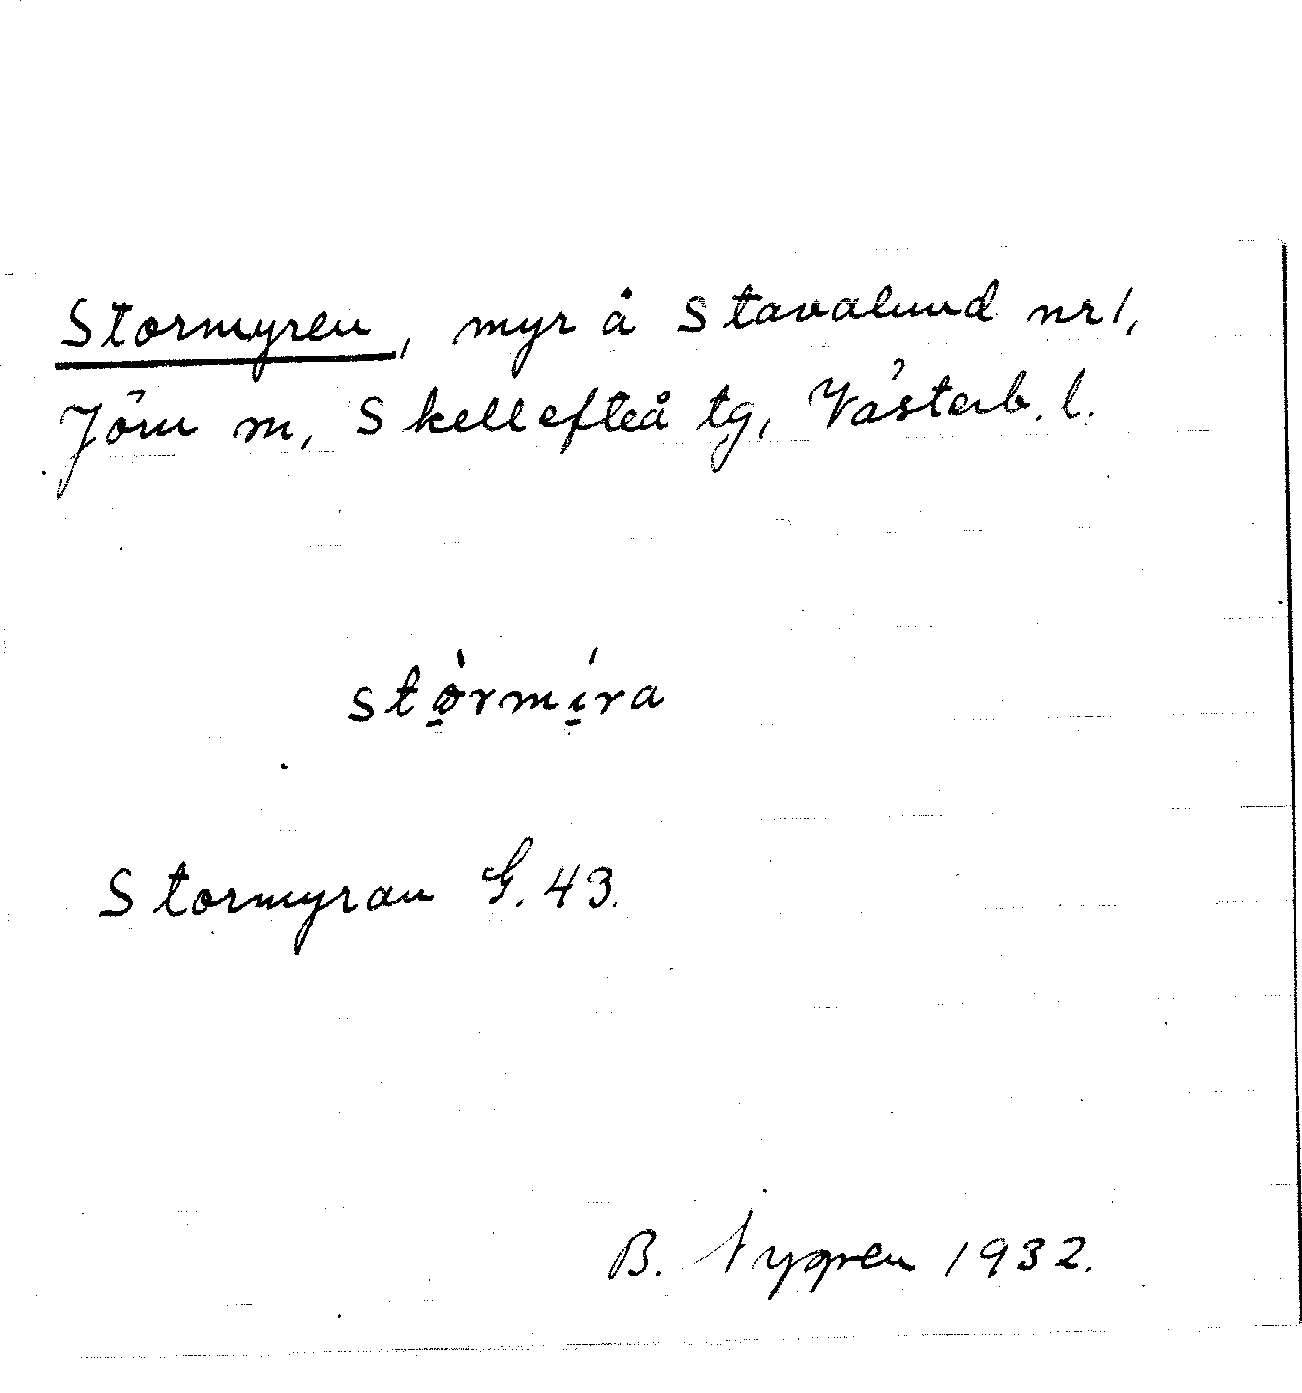 Stormyren, myr å Stavalund nr 1,
Jörn m, Skellefteå tg, Västerb. l.
stò̱rmí̱ra
Stormyran G. 43.
B. Nygren 1932.